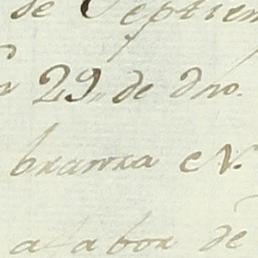 de Septiem
29, de dho.
branza eN.
a labor de